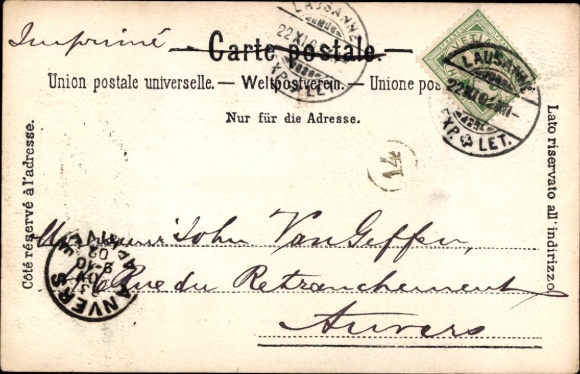 Imprimé
Carte postale.
Union postale universelle. — Weltpostverein. — Unione pos
Nur für die Adresse.
Côté réservé à l'adresse.
Lato riservato all' indirizzo.
LAUSANNE
22.XI
EXP. LET.
HELVETIA
LAUSANNE
22.XI.02.XII-
EXP. LET.
14
Monsieur John Van Geffen,
Rue du Retranchement
Anvers
ANVERS
9-10
02